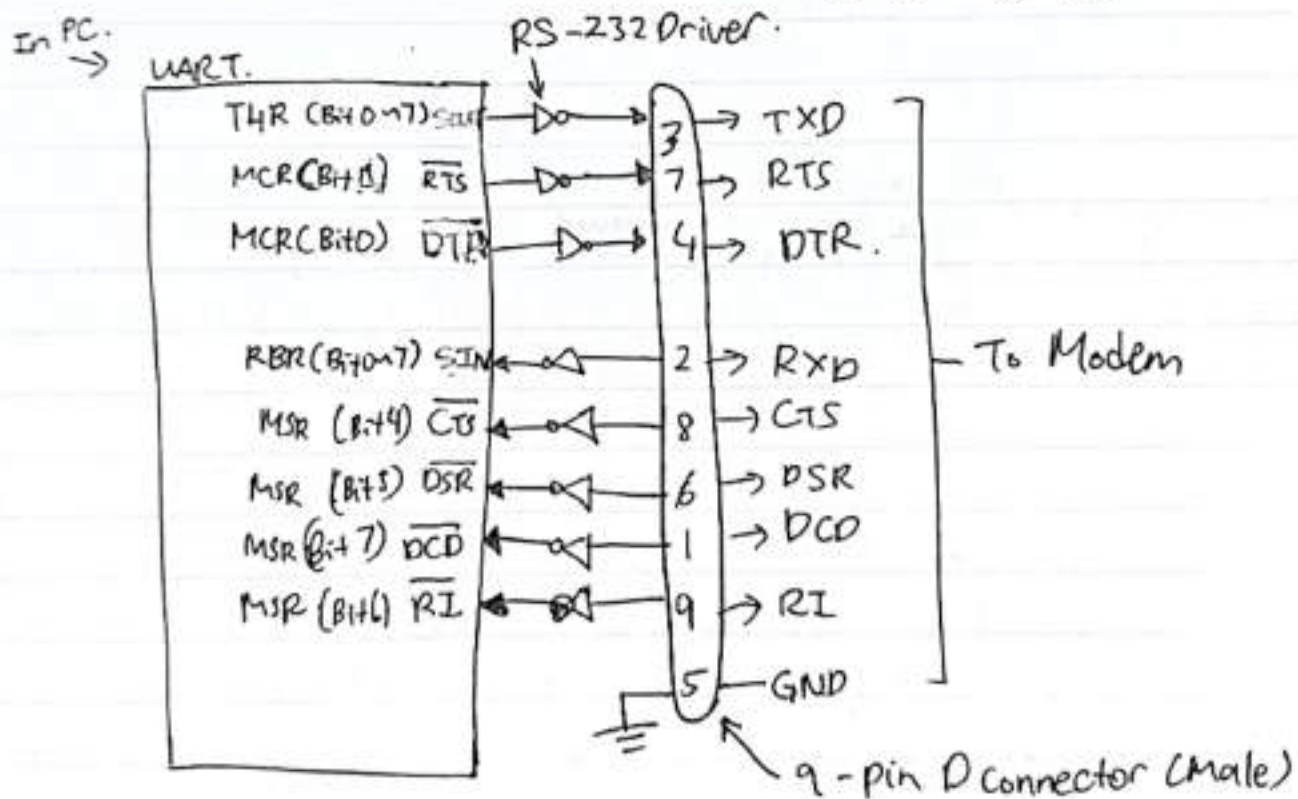 In PC.
RS-232 Driver.
UART.
THR (Bit0~7) SOUT 3 TXD
MCR (Bit1) RTS 7 RTS
MCR (Bit0) DTR 4 DTR.
RBR (Bit0~7) SIN 2 RXD
To Modem
MSR (Bit4) CTS 8 CTS
MSR (Bit5) DSR 6 DSR
MSR (Bit 7) DCD 1 DCD
MSR (Bit6) RI 9 RI
5 GND
9-pin D connector (Male)